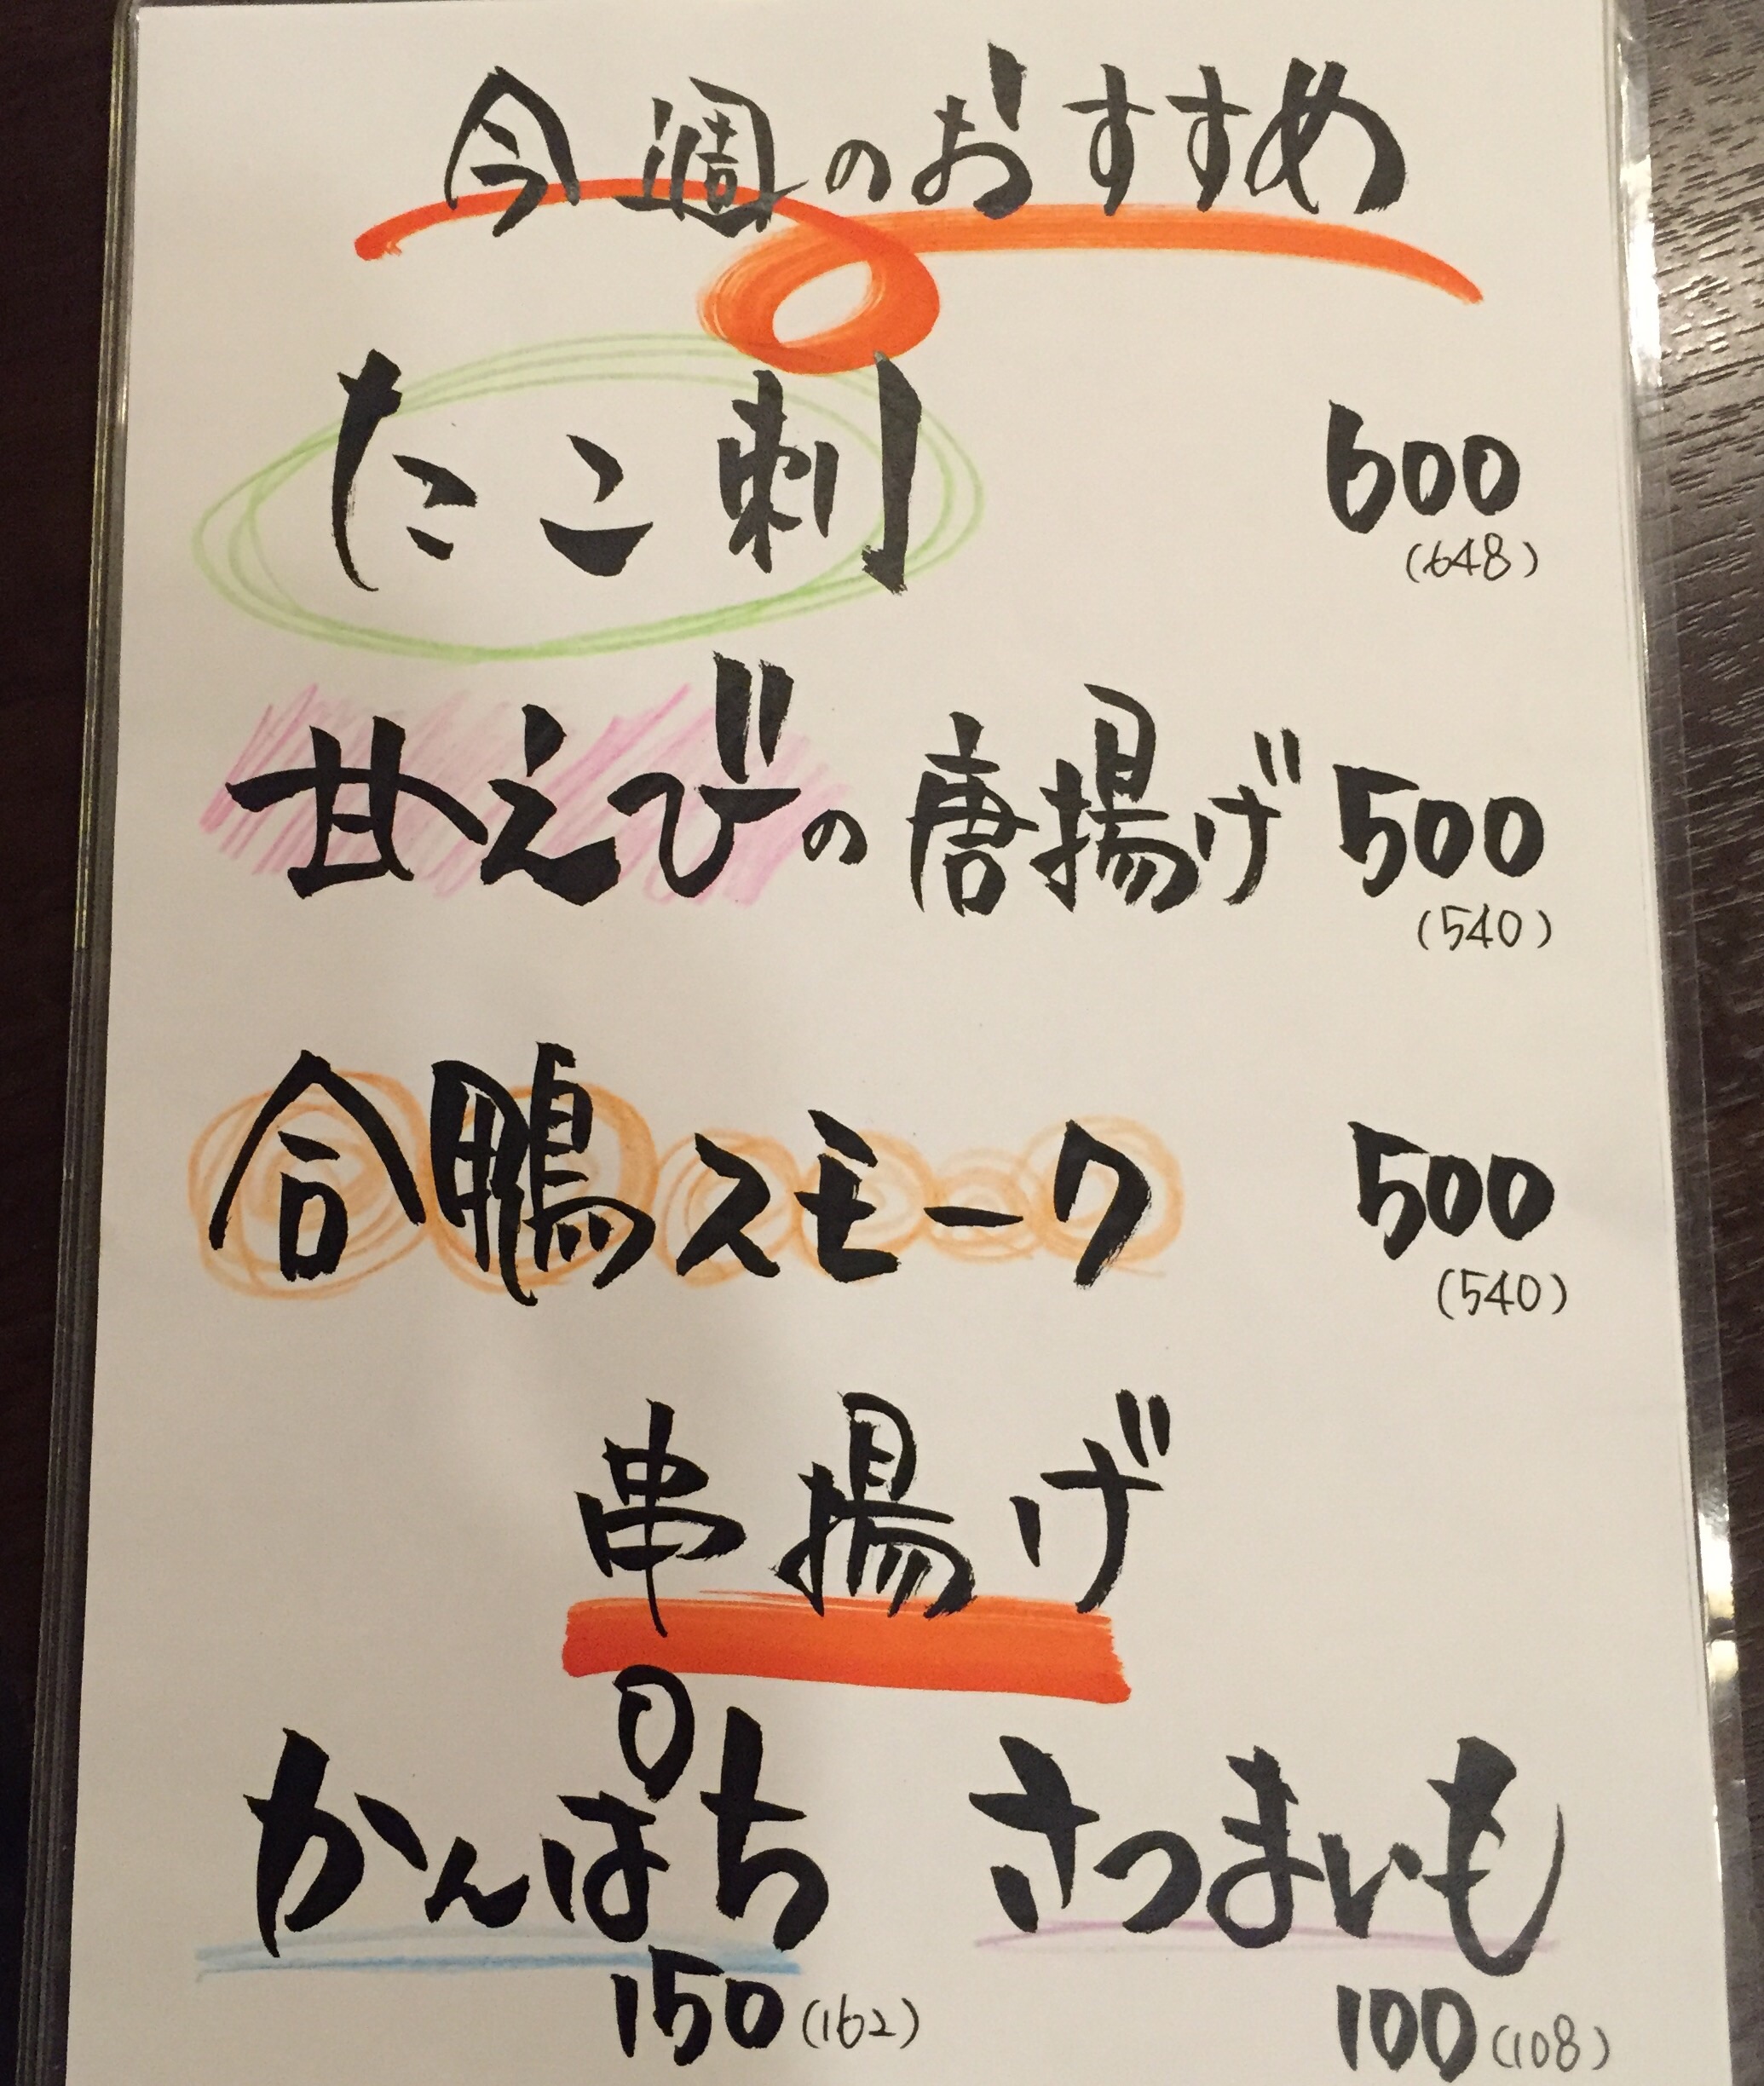 今週のおすすめ
たこ刺 600
(648)
甘えびの唐揚げ 500
(540)
合鴨スモーク 500
(540)
串揚げ
かんぱち さつまいも
150(162) 100(108)